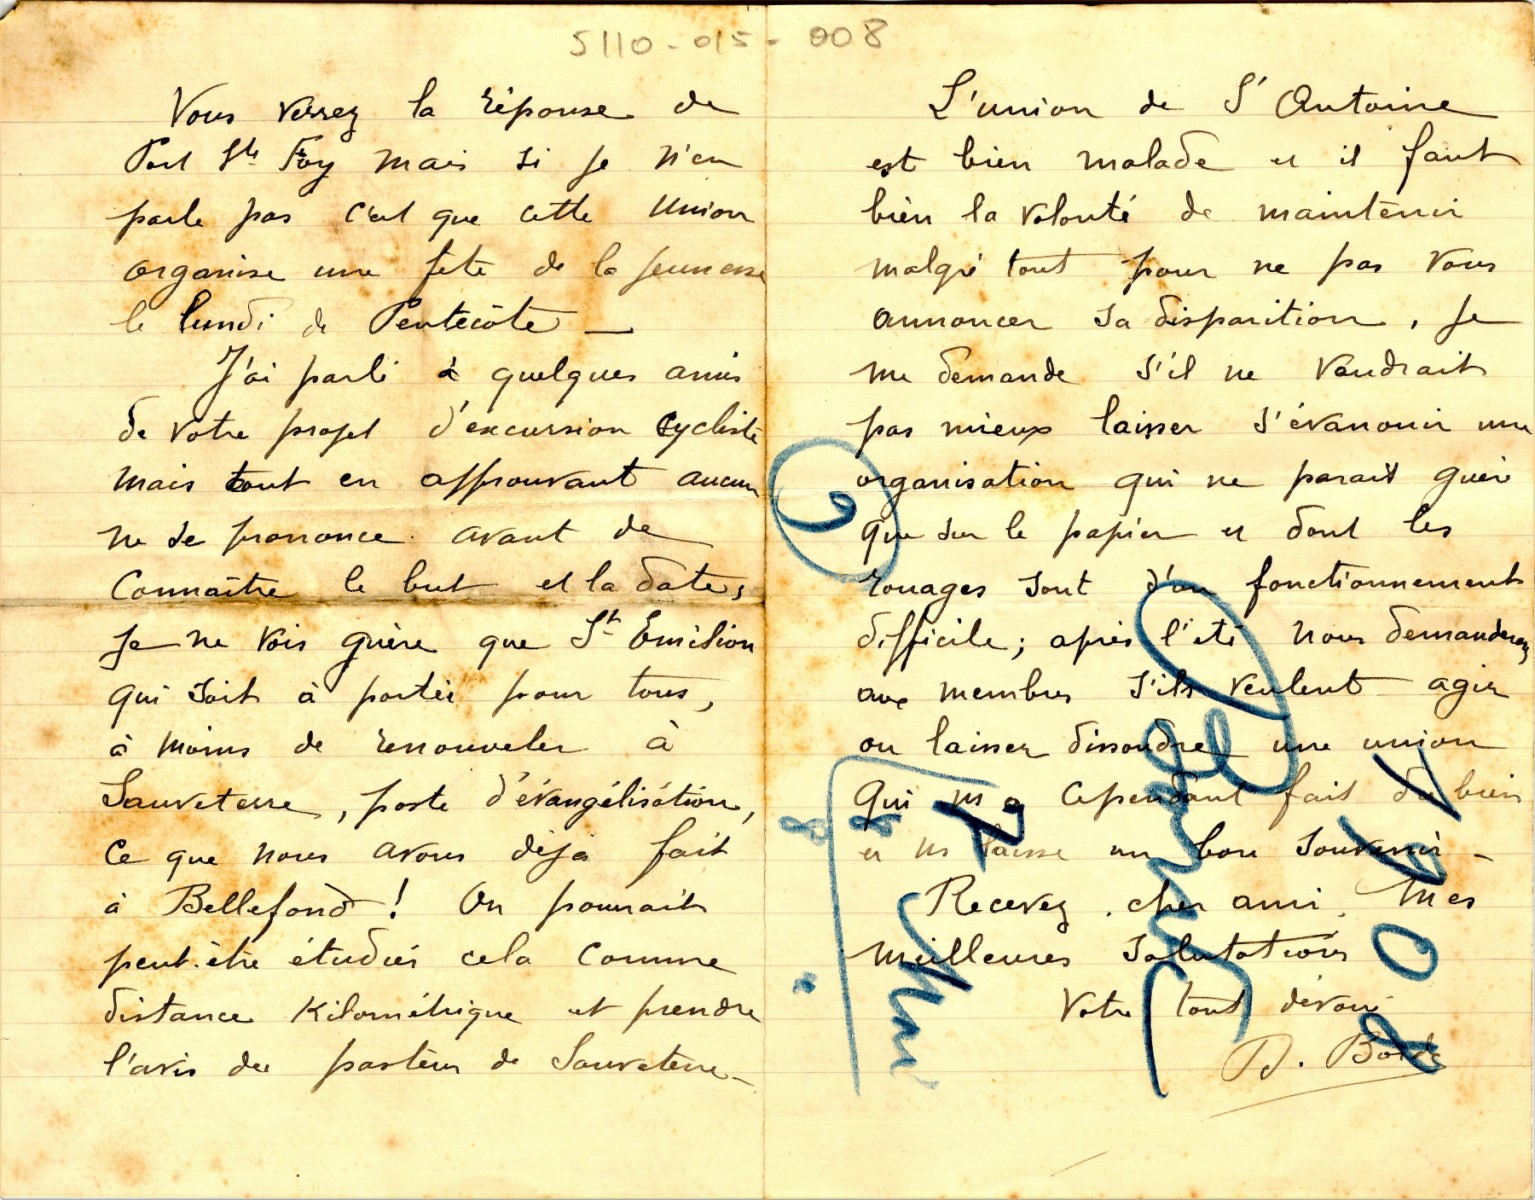 5110-015-008
Vous verrez la réponse de
Port Ste Foy mais si je n'en
parle pas c'est que cette Union
organise une fete de la jeunesse
le lundi de Pentecôte —
J'ai parlé à quelques amis
de votre projet d'excursion cycliste
mais tout en approuvant aucun
ne se prononce avant de
connaître le but et la date,
je ne vois guère que St Emilion
qui soit à portée pour tous,
à moins de renouveler à
Sauveterre, poste d'évangélisation,
ce que nous avons déjà fait
à Bellefond ! On pourrait
peut-être étudier cela comme
distance kilométrique et prendre
l'avis du pasteur de Sauveterre —
L'union de St Antoine
est bien malade et il faut
bien la volonté de maintenir
malgré tout pour ne pas vous
annoncer sa disparition, je
me demande s'il ne vaudrait
pas mieux laisser s'évanouir une
organisation qui ne parait guère
que sur le papier et dont les
rouages sont d'un fonctionnement
difficile ; après l'été nous demanderons
aux membres s'ils veulent agir
ou laisser dissoudre une union
qui m'a cependant fait du bien
et me laisse un bon souvenir —
Recevez, cher ami, mes
meilleures salutations
Votre tout dévoué
Mai